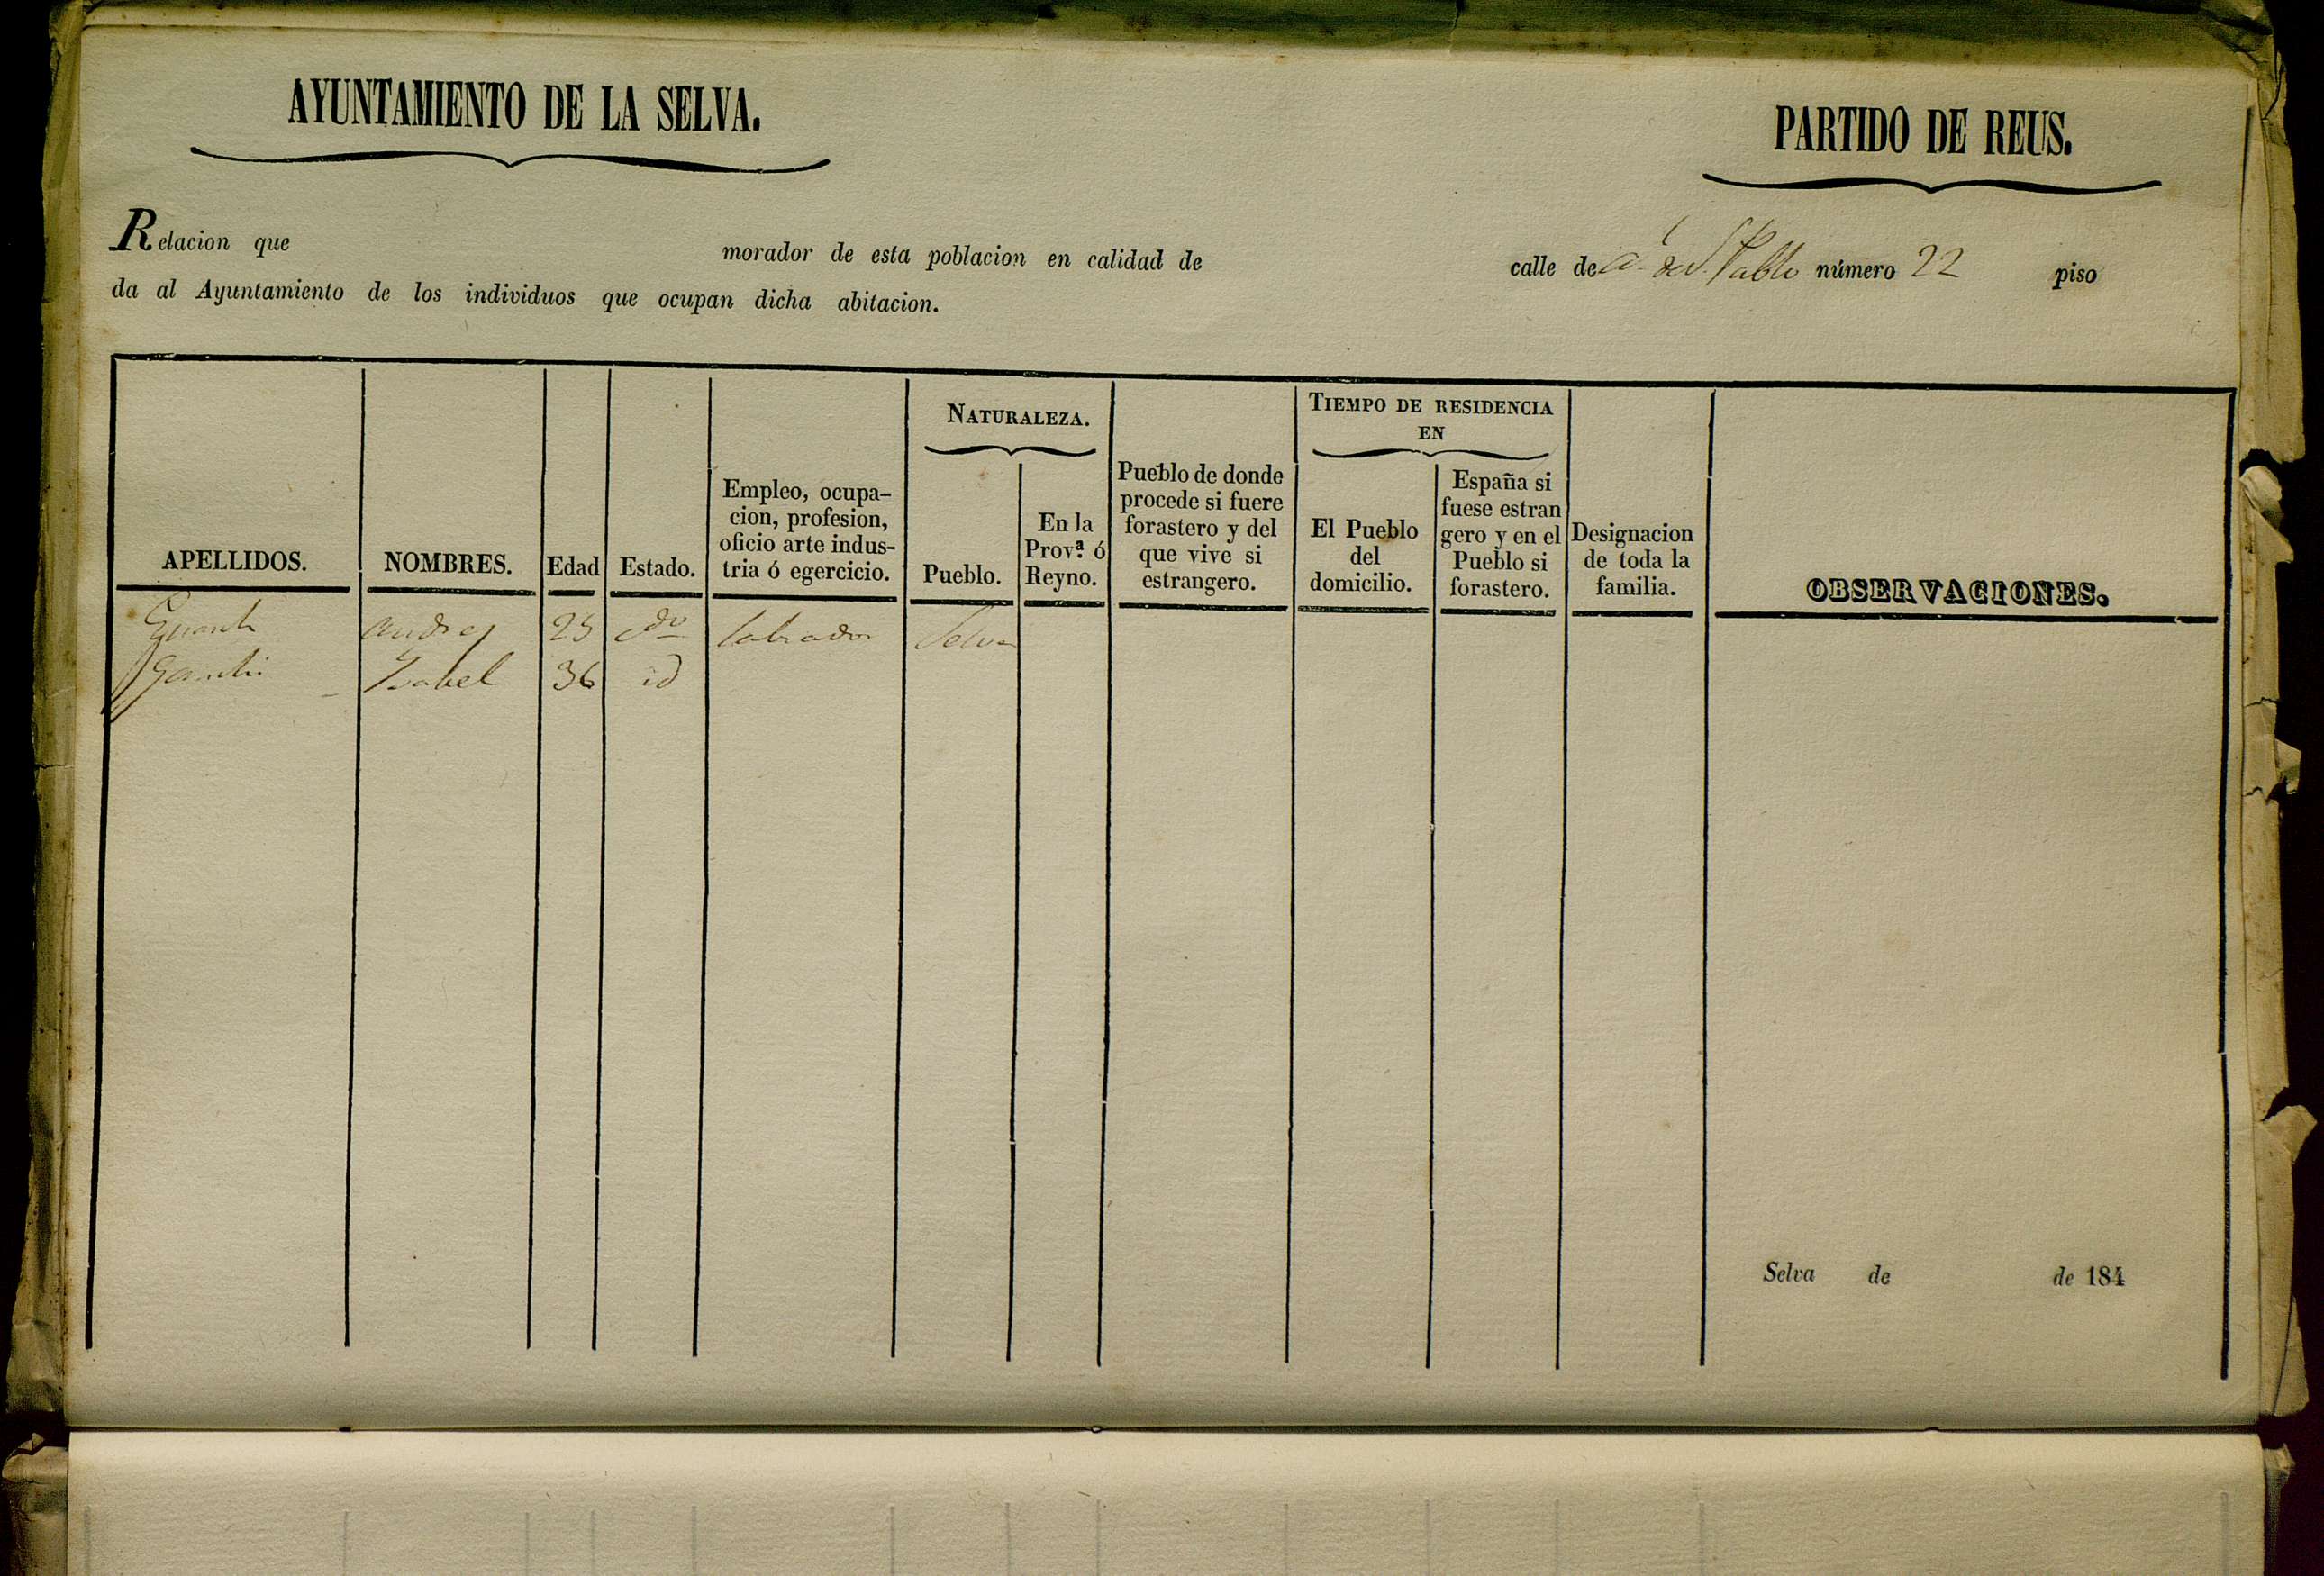 AYUNTAMIENTO DE LA SELVA.
PARTIDO DE REUS.
Relacion que morador de esta poblacion en calidad de calle de S. Pablo número 22 piso
da al Ayuntamiento de los individuos que ocupan dicha abitacion.
APELLIDOS.
NOMBRES.
Edad
Estado.
Empleo, ocupa-
cion, profesion,
oficio arte indus-
tria ó egercicio.
NATURALEZA.
Pueblo.
En la
Prov.ª ó
Reyno.
Pueblo de donde
procede si fuere
forastero y del
que vive si
estrangero.
TIEMPO DE RESIDENCIA
EN
El Pueblo
del
domicilio.
España si
fuese estran
gero y en el
Pueblo si
forastero.
Designacion
de toda la
familia.
OBSERVACIONES.
Andres 25 cdo labrador Selva
Ysabel 36 id
Selva de de 184